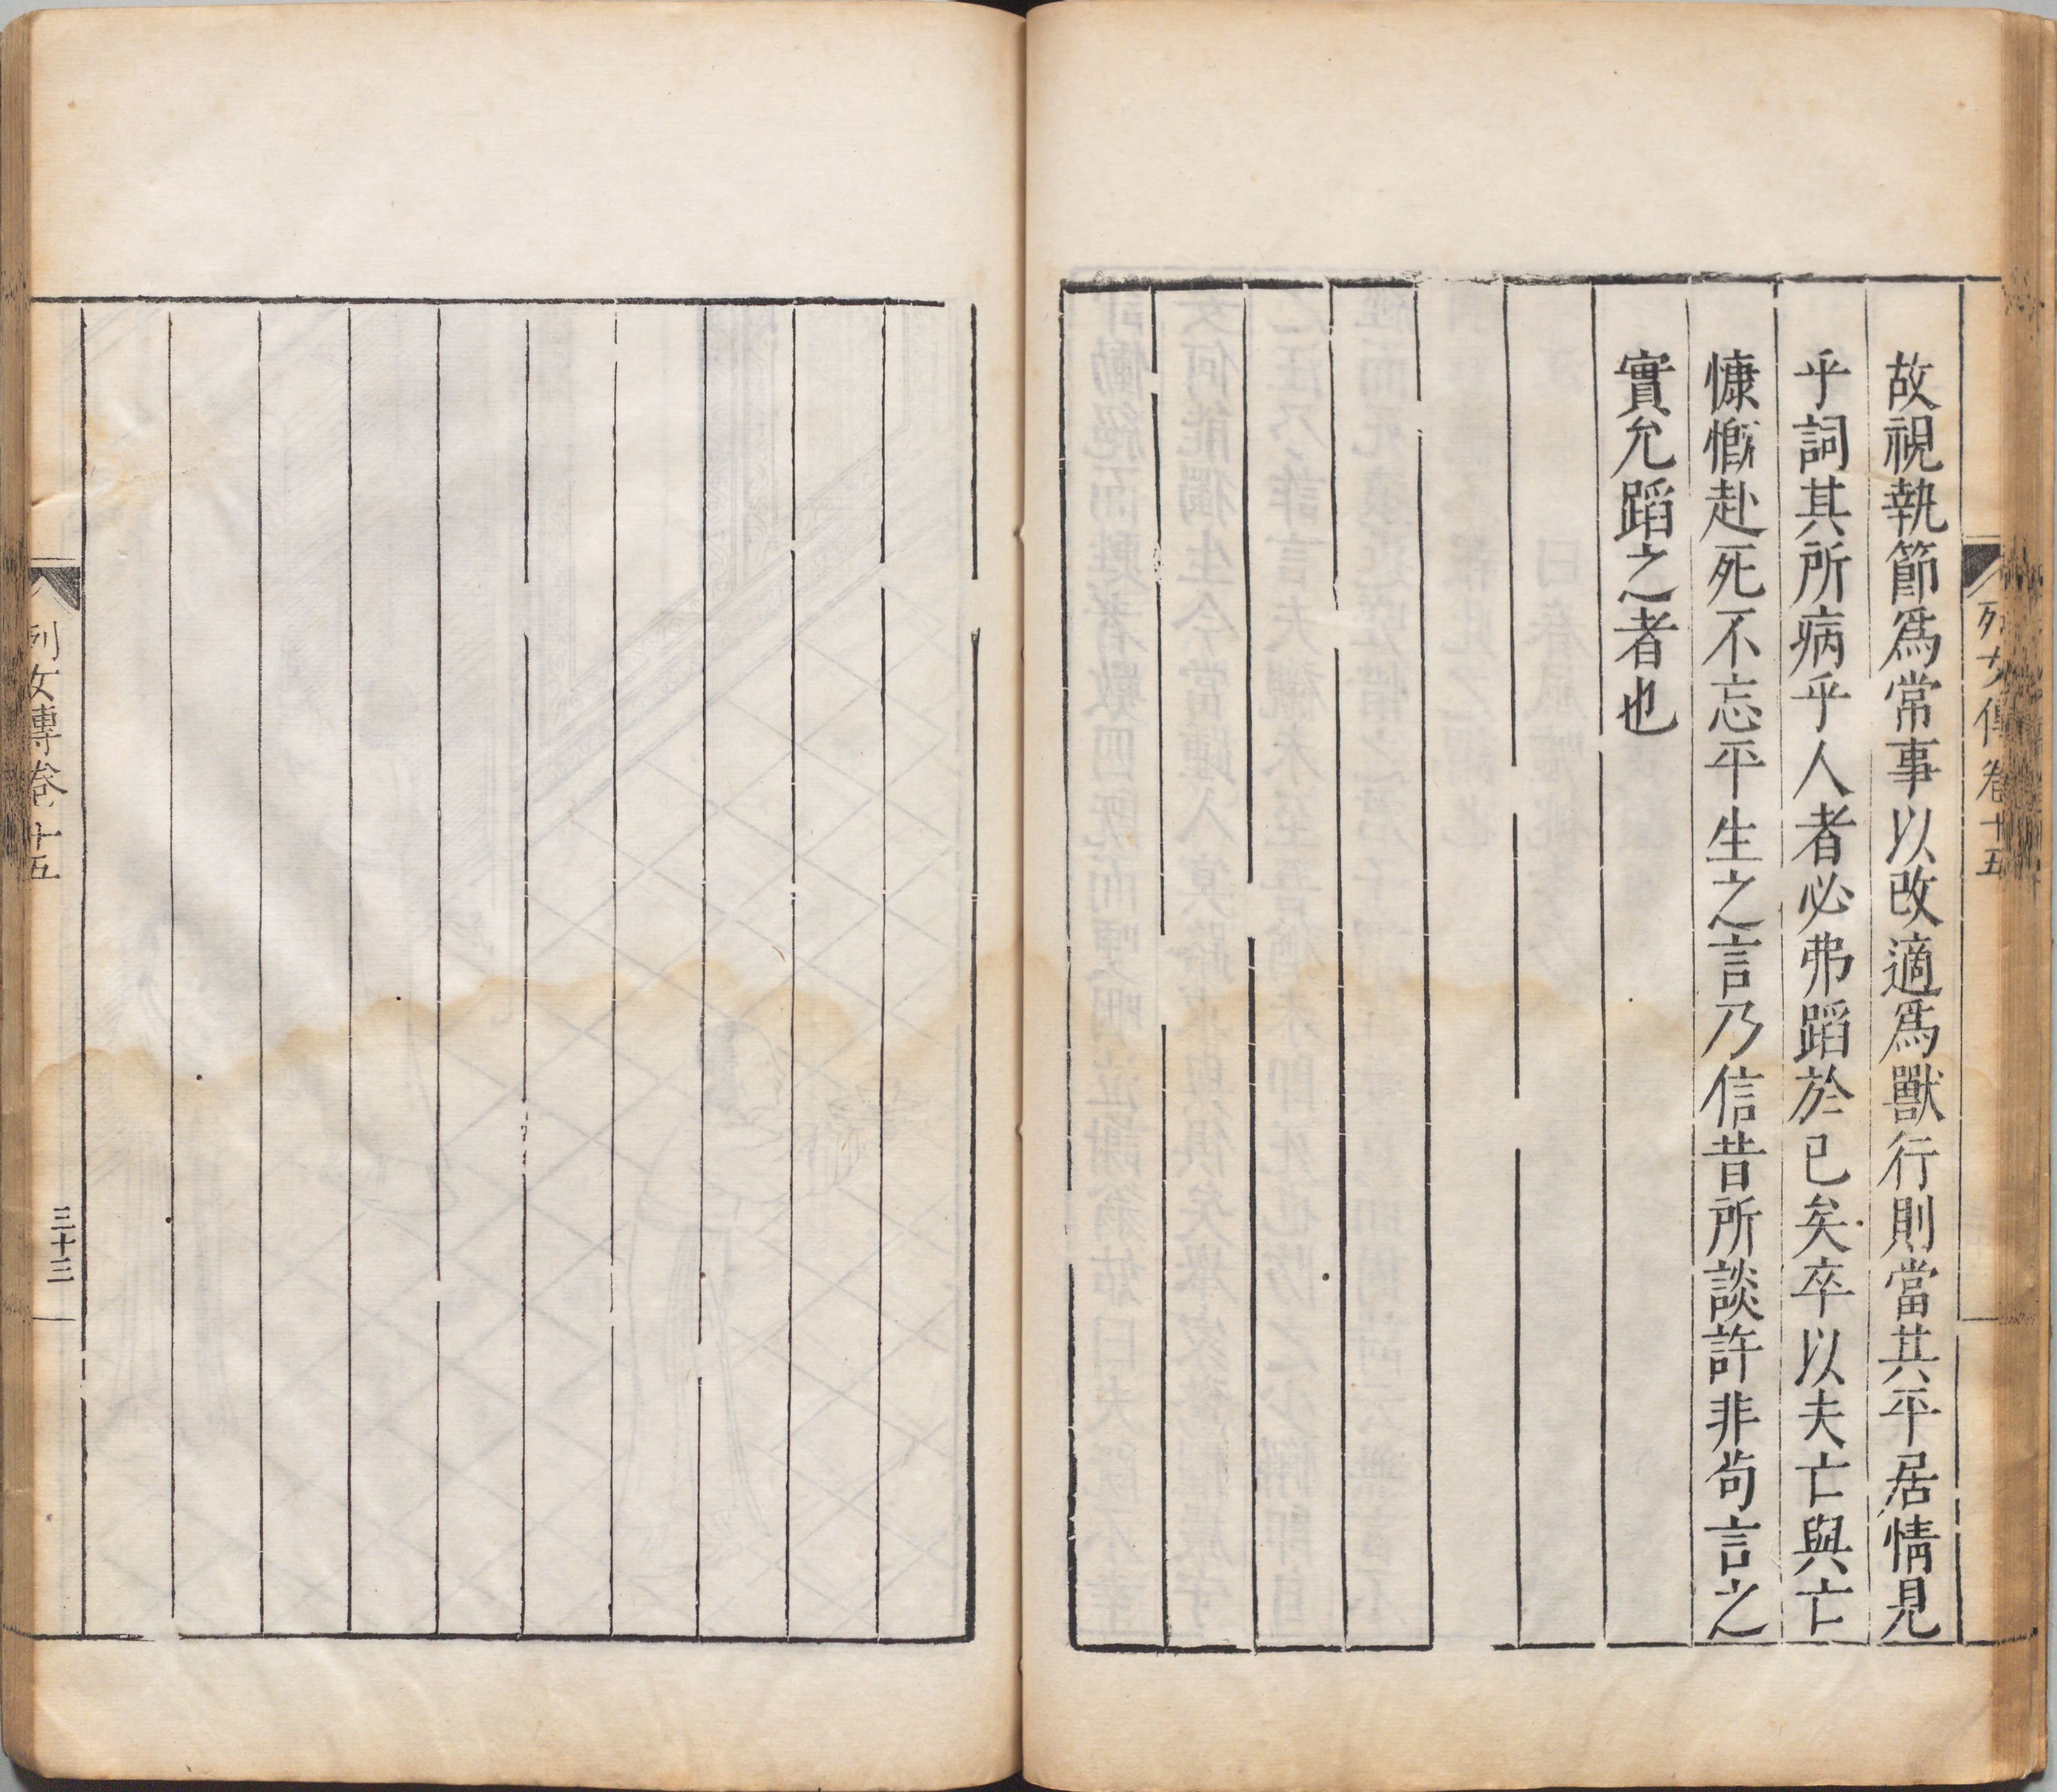 列女傳卷十五
故視執節爲常事以改適爲獸行則當其平居情見
乎詞其所病乎人者必弗蹈於已矣卒以夫亡與亡
慷慨赴死不忘平生之言乃信昔所談許非苟言之
實允蹈之者也
列女傳卷十五
三十三